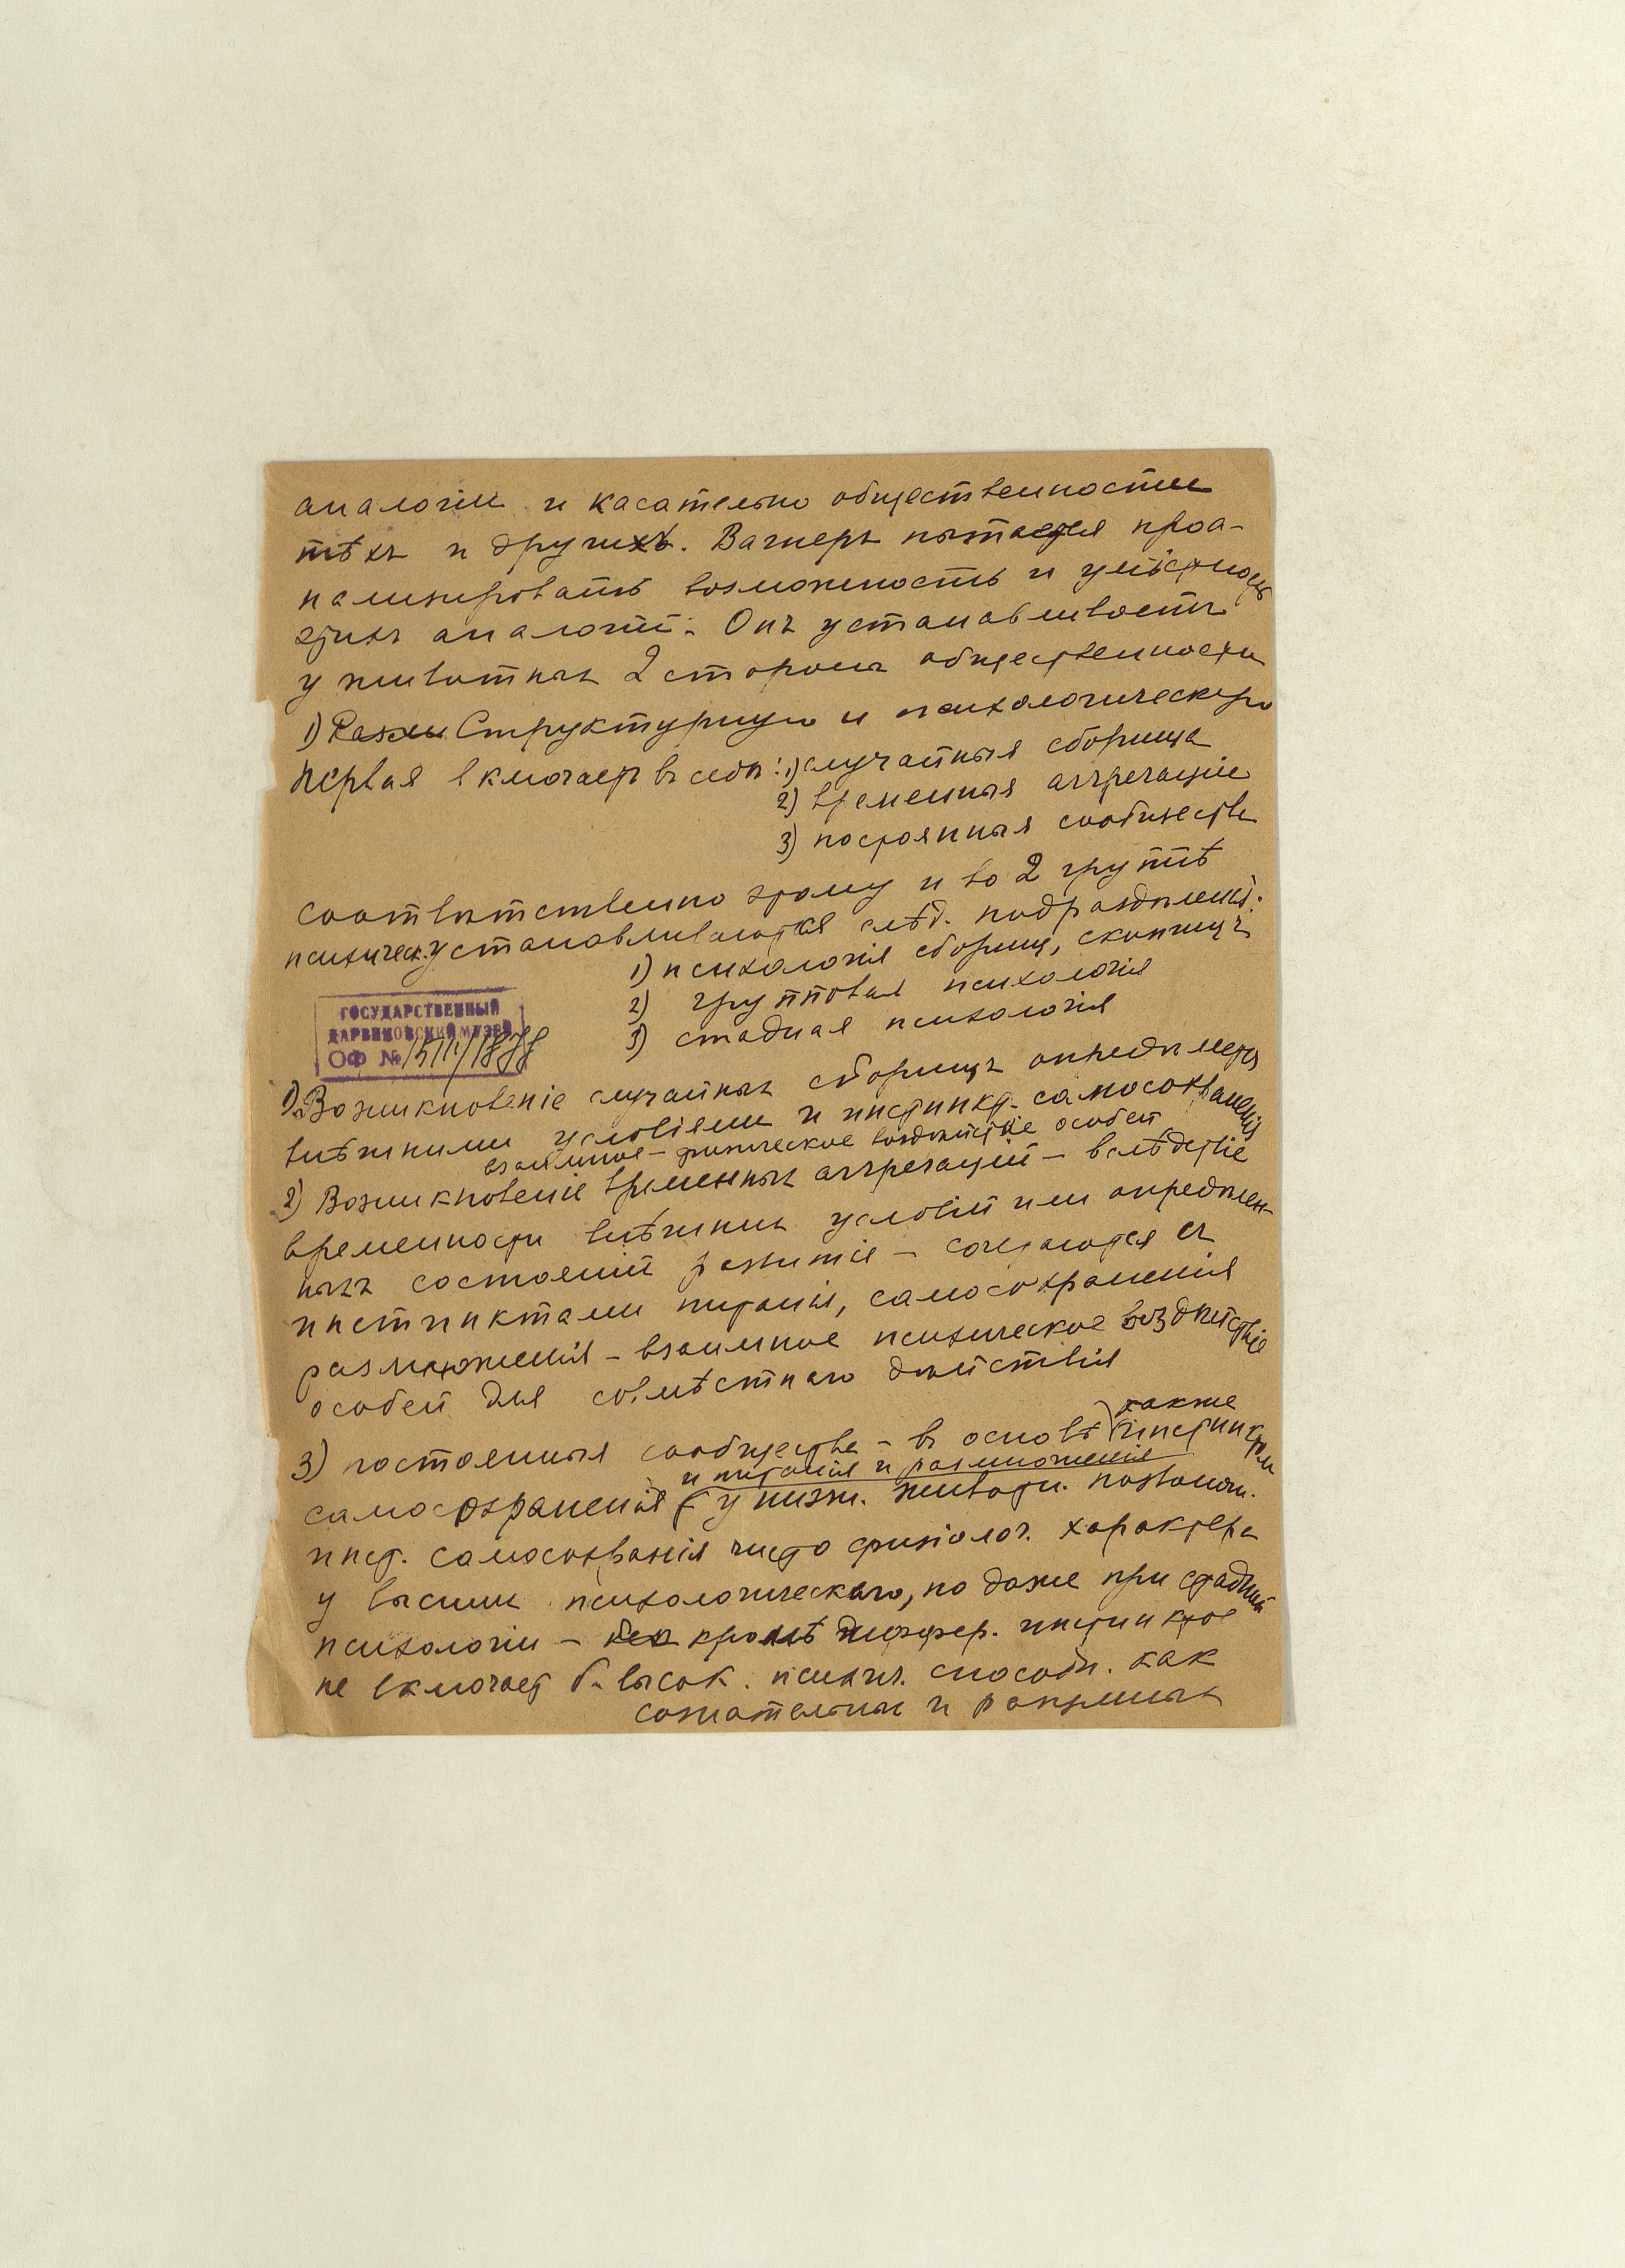 аналогіи и касательно общественности
тѣхъ и другихъ. Вагнеръ пытается проа-
нализировать возможность и умѣстность
этихъ аналогій. Онъ устанавливаетъ
у животныхъ 2 стороны общественности
1) Структурную и психологическую
первая включаетъ въ себя: 1) случайныя сборища
2) временныя аггрегаціи
3) постоянныя сообщества
соотвѣтственно этому и во 2 группѣ
психическ. устанавливаются слѣд. подраздѣленія:
1) психологія сборищъ, скопищъ
2) групповая психологія
3) стадная психологія
ГОСУДАРСТВЕННЫЙ
ДАРВИНОВСКИЙ МУЗЕЙ
ОФ №
1) Возникновеніе случайныхъ сборищъ опредѣляется
внѣшними условіями и инстинкт. самосохраненія
взаимное – физическое воздѣйствіе особей
2) Возникновеніе временныхъ аггрегацій – вслѣдствіе
временности внѣшнихъ условій или опредѣлен-
ныхъ состояній развитія – сочетаются съ
инстинктами питанія, самосохраненія
размноженія – взаимное психическое воздѣйствіе
особей для совмѣстнаго дѣйствія
3) постоянныя сообщества – въ основѣ также инстинкты
и питанія и размноженія
самосохраненія (у низш. животн. позвоночн.
инст. самосохранія чисто физіолог. характера
у высших психологическаго, но даже при стадной
психологіи – кромѣ диффер. инстинктов
не включает б. высок. психич. способн. как
сознательных и разумных